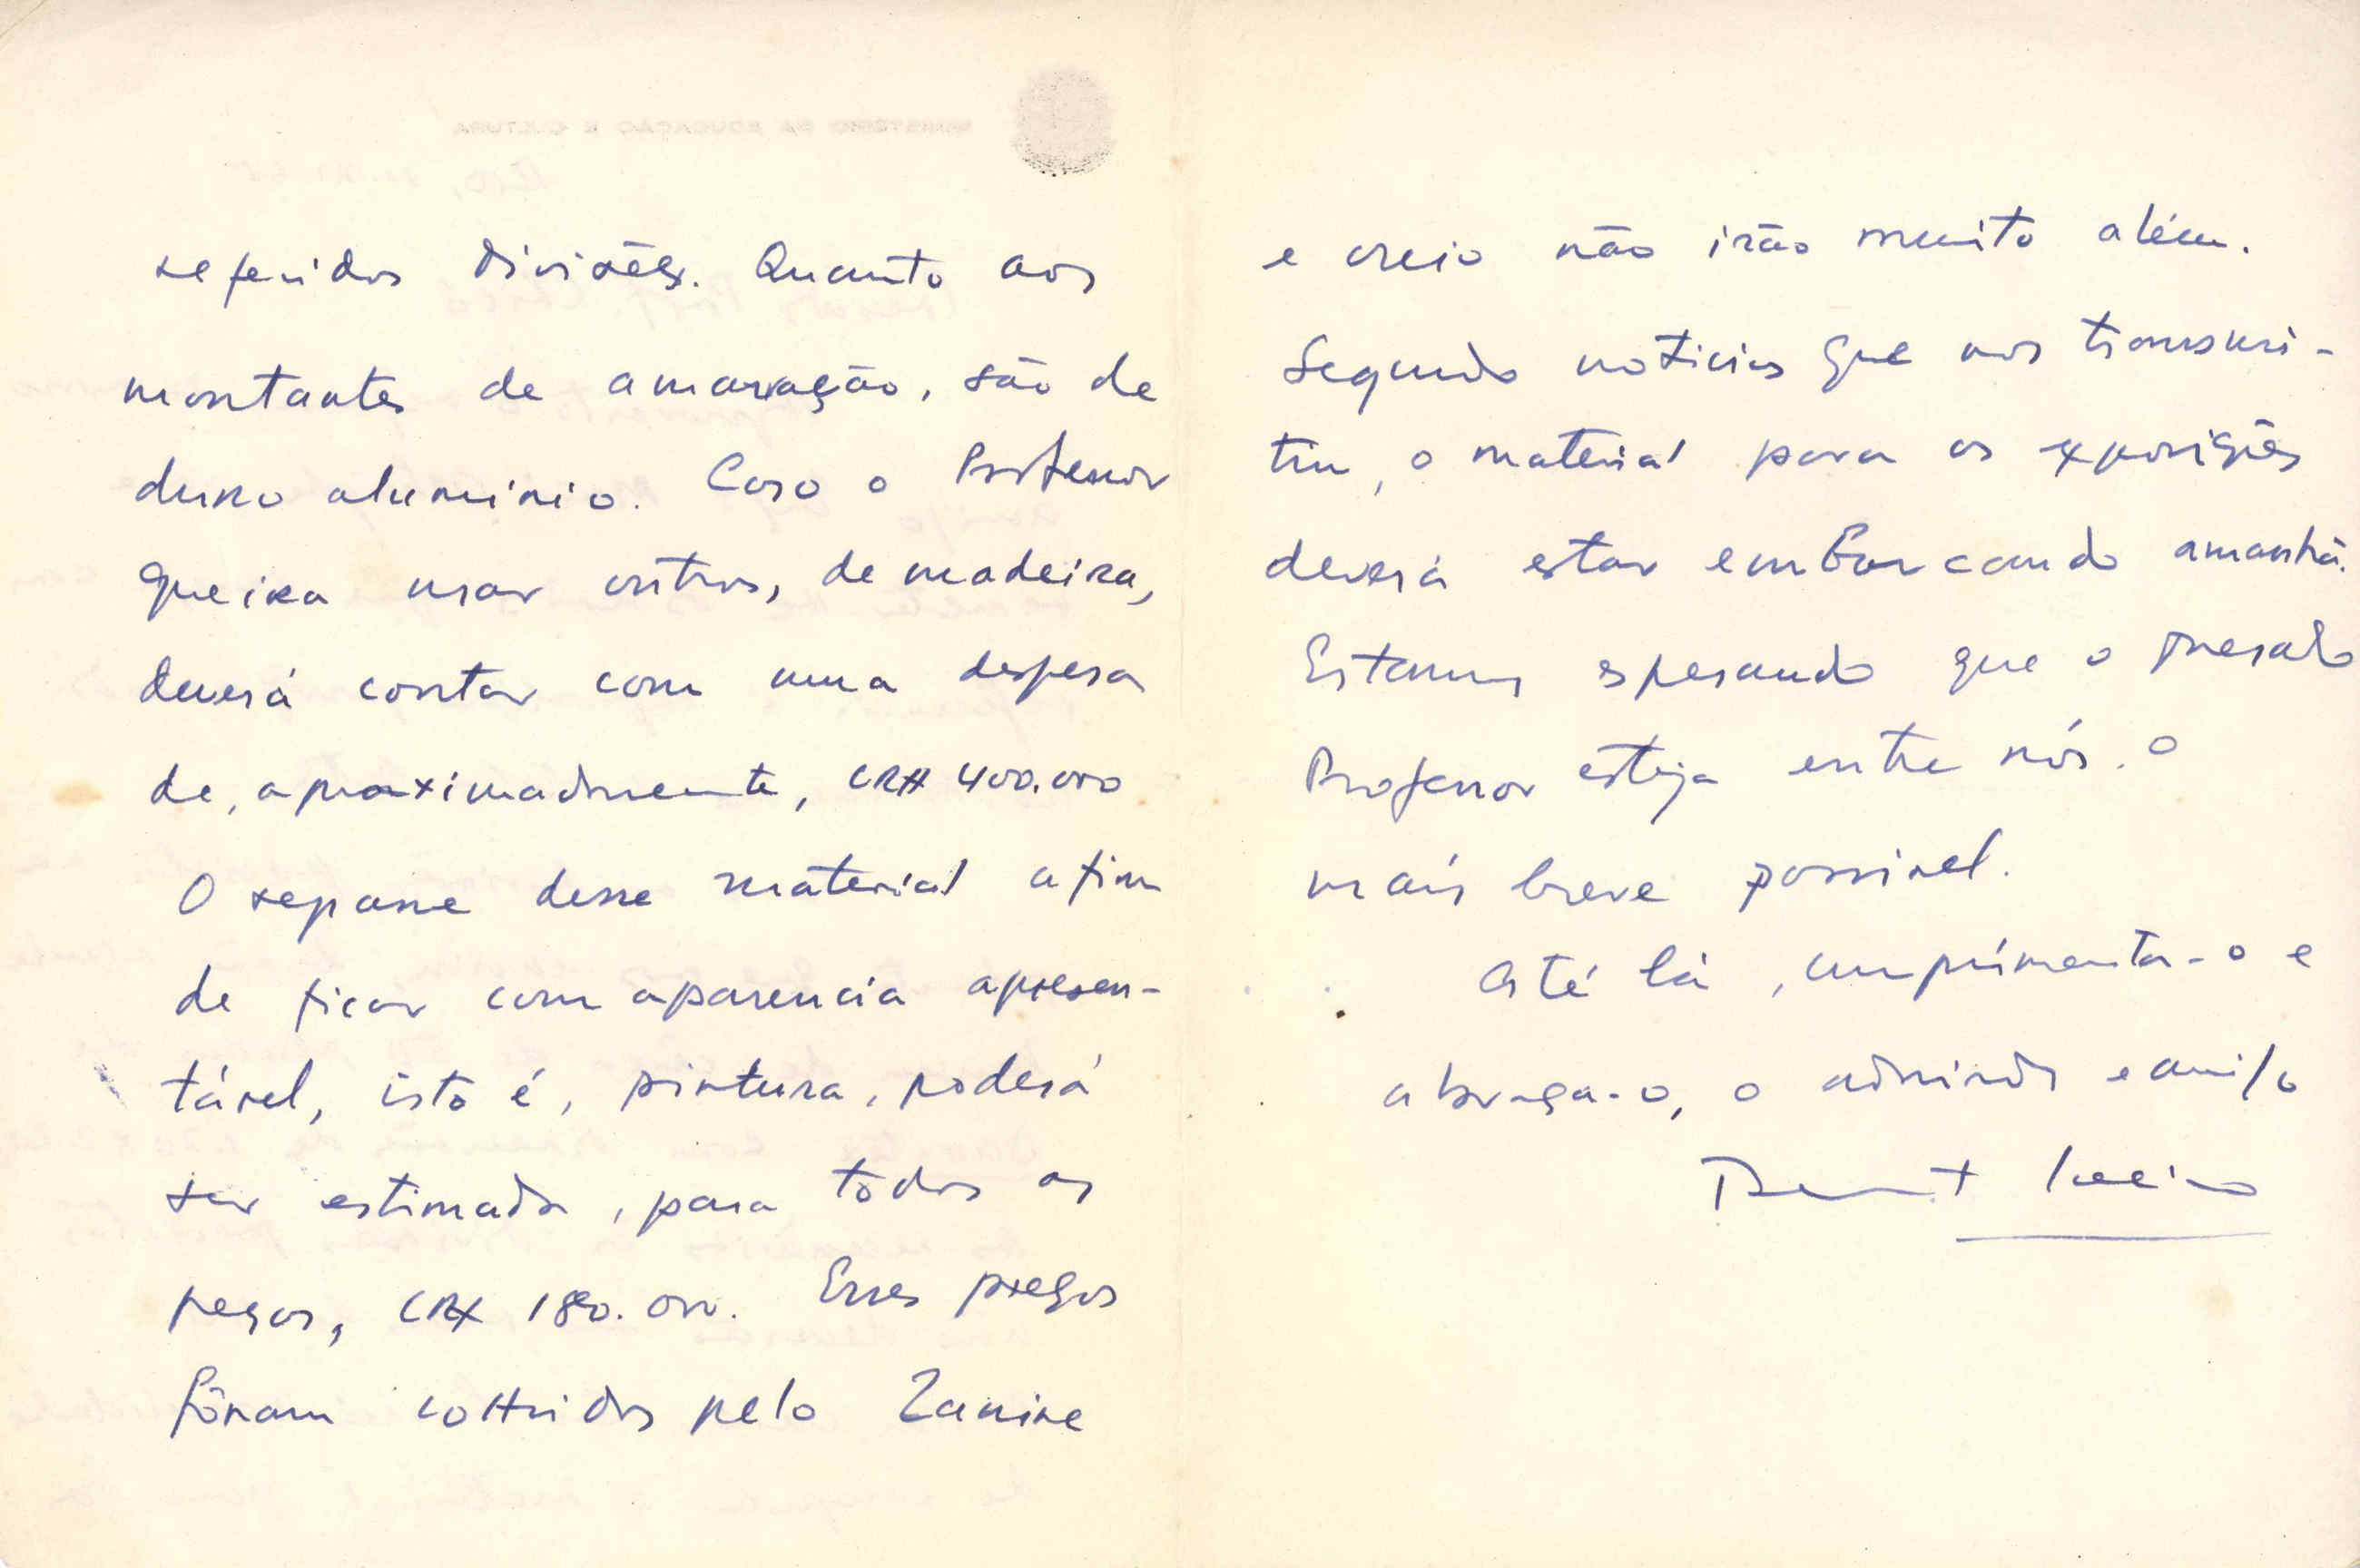 referidos divisões. Quanto aos
montantes de amarração, são de
duro aluminio. Caso o Professor
queira usar outros, de madeira,
deverá contar com uma despesa
de, aproximadmente, CR$ 400.000
O repasse desse material afim
de ficar com aparencia apresen-
tável, isto é, pintura, poderá
ser estimada, para todos as
peças, CR$ 180.000. Esses preços
fôram colhidos pelo Zanine
e creio não irão muito além.
Segundo noticias que nos transmi-
tiu, o material para as exposições
deverá estar embarcando amanhã.
Estamos esperando que o presado
Professor esteja entre nós. o
mais breve possivel.
Até lá, cumprimenta-o e
abraça-o, o admirador e amigo
MINISTÉRIO DA EDUCAÇÃO E CULTURA